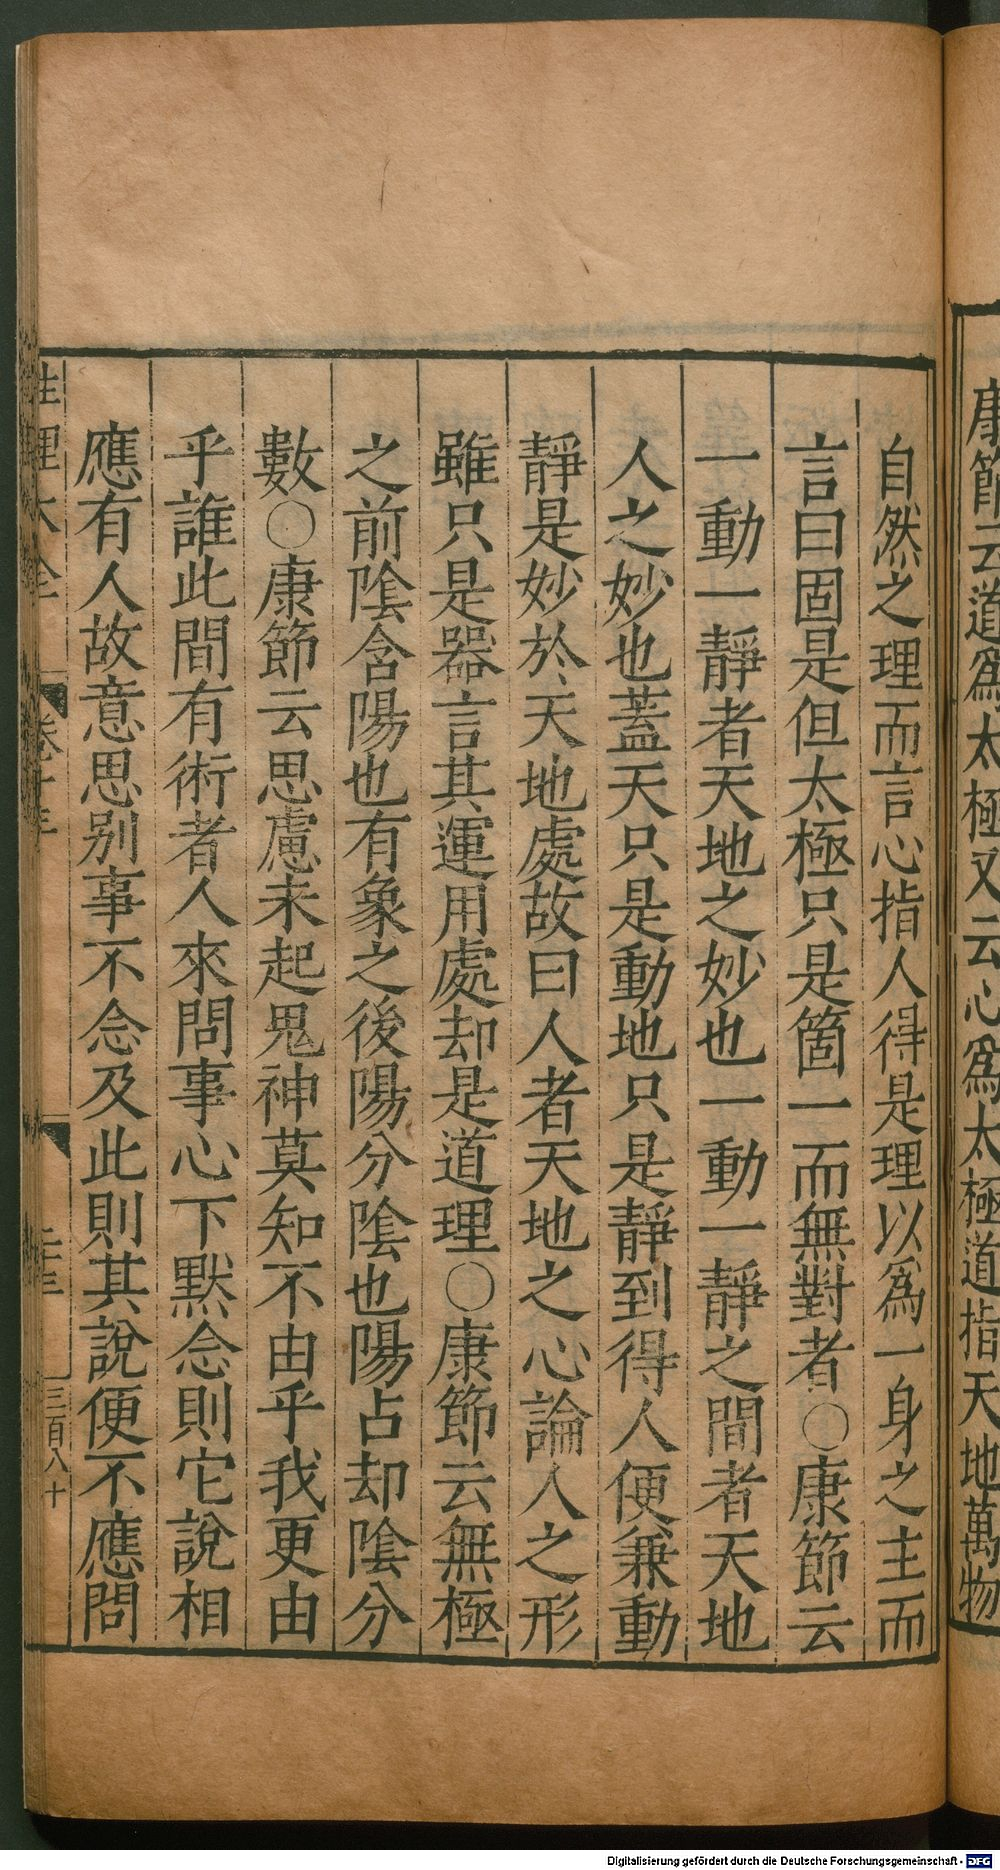 康節云道爲太極又云心爲太極道指天地萬物
自然之理而言心指人得是理以爲一身之主而
言曰固是但太極只是箇一而無對者○康節云
一動一靜者天地之妙也一動一靜之間者天地
人之妙也蓋天只是動地只是靜到得人便兼動
靜是妙於天地處故曰人者天地之心論人之形
雖只是器言其運用處却是道理○康節云無極
之前陰含陽也有象之後陽分陰也陽占却陰分
數○康節云思慮未起鬼神莫知不由乎我更由
乎誰此間有術者人來問事心下默念則它說相
應有人故意思别事不念及此則其說便不應問
性理大全
三百八十
Digitalisierung gefördert durch die Deutsche Forschungsgemeinschaft - DFG